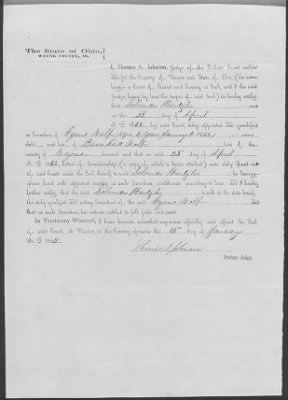 The State of Ohio,
WAYNE COUNTY, SS.
I, Thomas A. Johnson, Judge of the Probate Court within
and for the County of Wayne and State of Ohio, (the same
being a Court of Record and having a Seal, and I the sole
Judge, keeping the Seal thereof) do hereby certify
that Solomon Hertzler was
on the 23 day of April
A. D. by said Court, duly appointed and qualified
as Guardian of Cyrus Wolf aged years January
child and heir of Wolf late of the
county of Wayne deceased and that on said 23 day of April
A. D. Letters of Guardianship (a copy of which is hereto attached) were duly issued out
of said Court under the Seal thereof, to said Solomon Hertzler he having
given bond with approved security as such Guardian, conditioned according to law; and I
further certify that the said Solomon Hertzler is still at the date hereof,
the duly qualified and acting Guardian of the said Cyrus Wolf and
that as such Guardian, his acts are entitled to full faith and credit.
In Testimony Whereof, I have hereunto subscribed my name officially and affixed the Seal
of said Court, at Wooster, in the County aforesaid this 15th day of January
A. D.
Thomas A Johnson
Probate Judge.